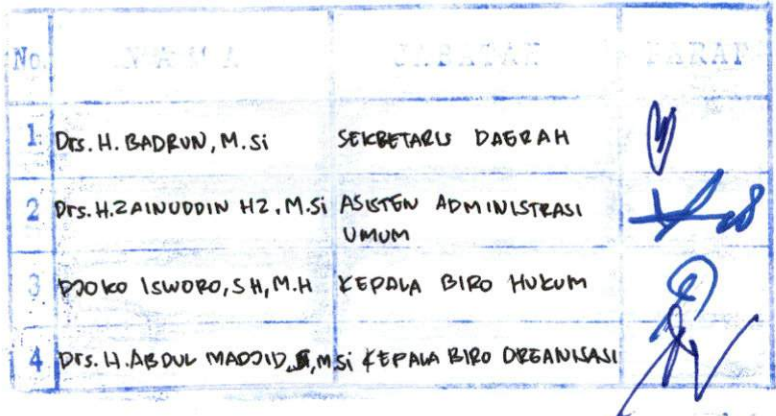 No. NAMA JABATAN PARAF
1. Drs. H. BADRUN, M.Si SEKRETARIS DAERAH
2 Drs. H. ZAINUDDIN HZ, M.Si ASISTEN ADMINISTRASI
UMUM
3 DJOKO ISWORO, SH, M.H KEPALA BIRO HUKUM
4 Drs. H. ABDUL MADJID, M.Si KEPALA BIRO ORGANISASI